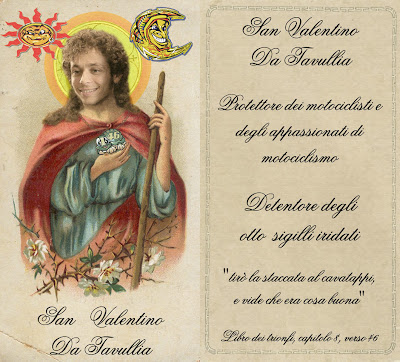 46
San Valentino
Da Tavullia
San Valentino
Da Tavullia
Protettore dei motociclisti e
degli appassionati di
motociclismo
Detentore degli
otto sigilli iridati
"tirò la staccata al cavatappi,
e vide che era cosa buona"
Libro dei trionfi, capitolo 8, verso 46